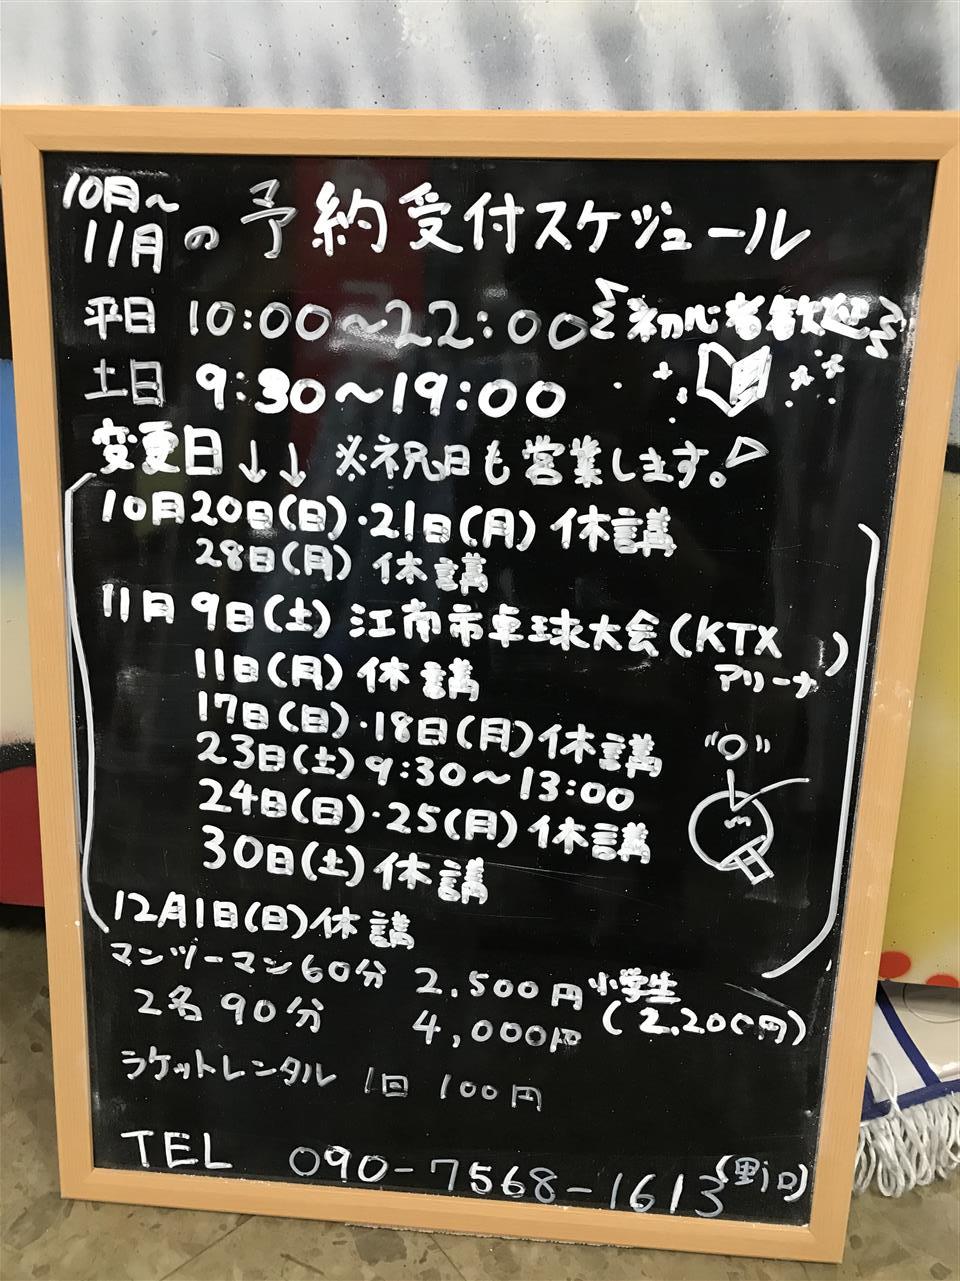 10月～
11月の予約受付スケジュール
平日 10:00～22:00 初心者歓迎
土日 9:30～19:00
変更日↓↓ ※祝日も営業します。
10月20日(日)・21日(月) 休講
28日(月) 休講
11月9日(土) 江南市卓球大会(KTX
アリーナ)
11日(月) 休講
17日(日)・18日(月) 休講
23日(土) 9:30～13:00
24日(日)・25(月) 休講
30日(土) 休講
12月1日(日) 休講
マンツーマン60分 2,500円 小学生
(2,200円)
2名90分 4,000円
ラケットレンタル 1回 100円
TEL 090-7568-1613(野口)